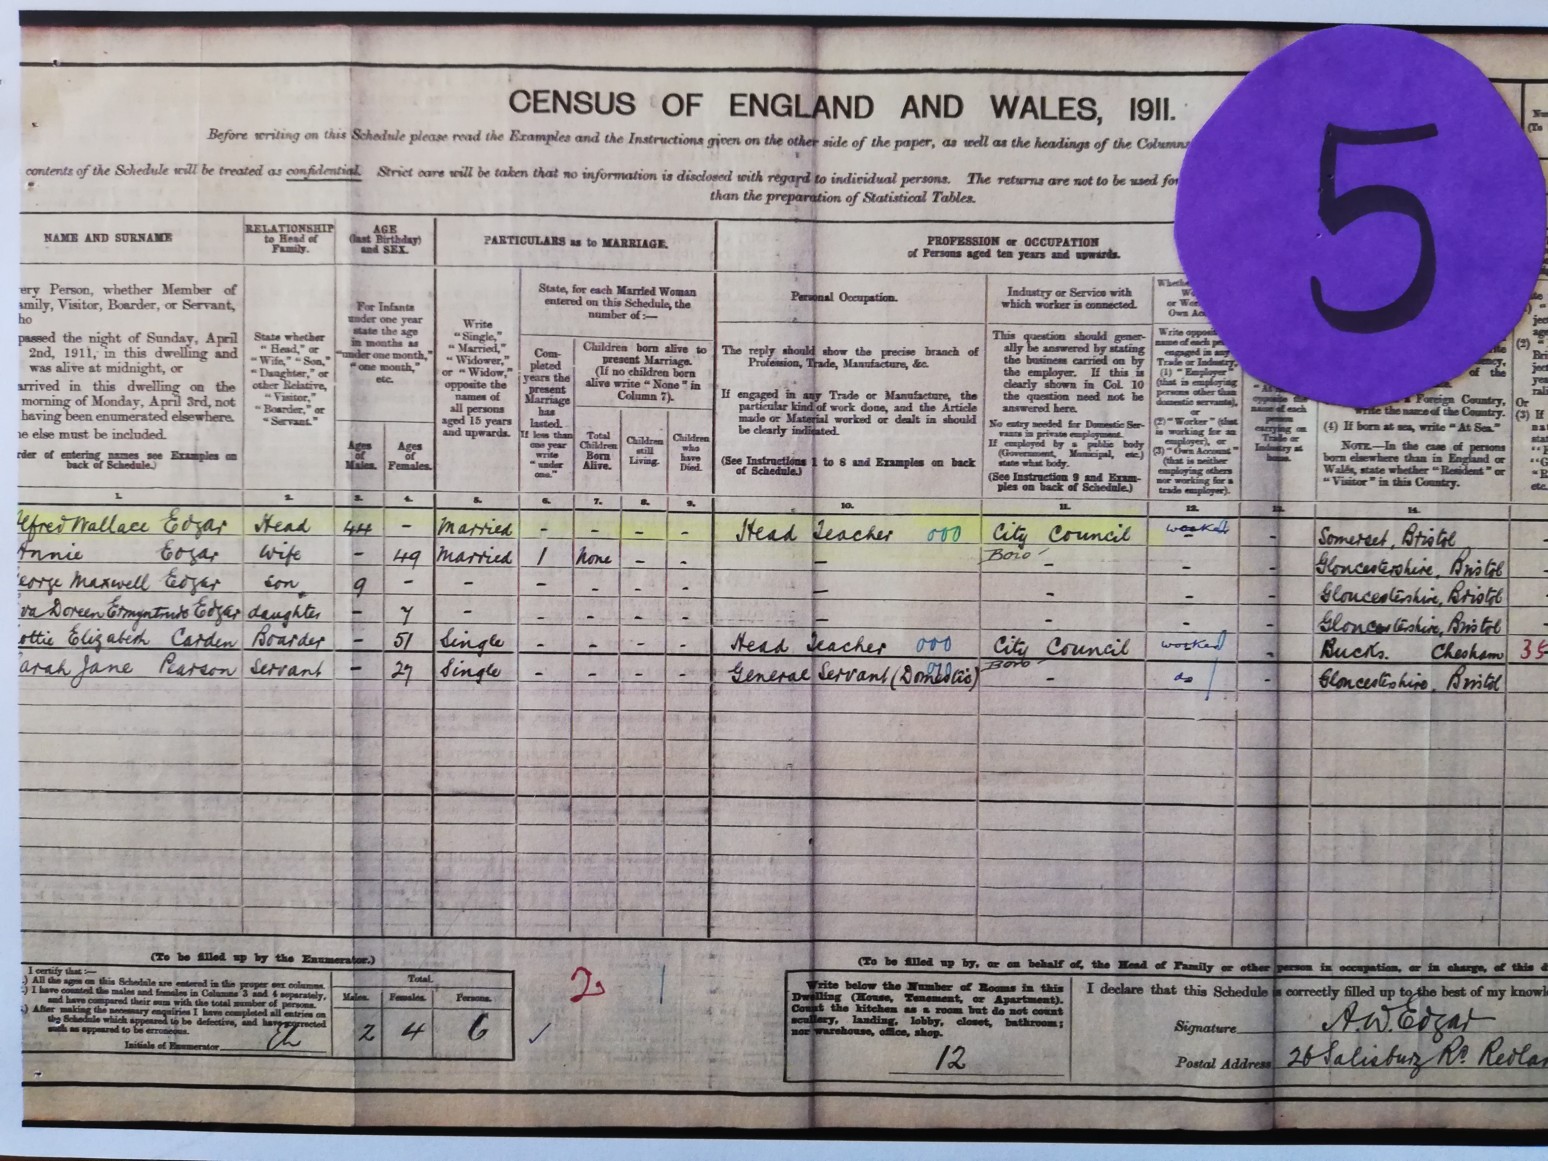 CENSUS OF ENGLAND AND WALES, 1911.
5
Before writing on this Schedule please read the Examples and the Instructions given on the other side of the paper, as well as the headings of the Columns
contents of the Schedule will be treated as confidential. Strict care will be taken that no information is disclosed with regard to individual persons. The returns are not to be used for
than the preparation of Statistical Tables.
NAME AND SURNAME
RELATIONSHIP
to Head of
Family.
AGE
(last Birthday)
and SEX.
PARTICULARS as to MARRIAGE.
PROFESSION or OCCUPATION
of Persons aged ten years and upwards.
ery Person, whether Member of
amily, Visitor, Boarder, or Servant,
ho
passed the night of Sunday, April
2nd, 1911, in this dwelling and
was alive at midnight, or
arrived in this dwelling on the
morning of Monday, April 3rd, not
having been enumerated elsewhere.
ne else must be included.
rder of entering names see Examples on
back of Schedule.)
State whether
"Head," or
"Wife," "Son,"
"Daughter," or
other Relative,
"Visitor,"
"Boarder," or
"Servant."
For Infants
under one year
state the age
in months as
"under one month,"
"one month,"
etc.
Ages
of
Males.
Ages
of
Females.
Write
"Single,"
"Married,"
"Widower,"
or "Widow,"
opposite the
names of
all persons
aged 15 years
and upwards.
State, for each Married Woman
entered on this Schedule, the
number of:—
Com-
pleted
years the
present
Marriage
has
lasted.
If less than
one year
write
"under
one."
Children born alive to
present Marriage.
(If no children born
alive write "None" in
Column 7).
Total
Children
Born
Alive.
Children
still
Living.
Children
who
have
Died.
Personal Occupation.
The reply should show the precise branch of
Profession, Trade, Manufacture, &c.
If engaged in any Trade or Manufacture, the
particular kind of work done, and the Article
made or Material worked or dealt in should
be clearly indicated.
(See Instructions 1 to 8 and Examples on back
of Schedule.)
Industry or Service with
which worker is connected.
This question should gener-
ally be answered by stating
the business carried on by
the employer. If this is
clearly shown in Col. 10
the question need not be
answered here.
No entry needed for Domestic Ser-
vants in private employment.
If employed by a public body
(Government, Municipal, etc.)
state what body.
(See Instruction 9 and Exam-
ples on back of Schedule.)
Write opposite
name of each
engaged in any
Trade or Industry,
(1) "Employer"
(that is employing
persons other than
domestic servants),
or
(2) "Worker" (that
is working for an
employer), or
(3) "Own Account"
(that is neither
employing others
nor working for a
trade employer).
opposite the
name of each
person
carrying on
Trade or
Industry at
home.
Foreign Country,
write the name of the Country.
(4) If born at sea, write "At Sea."
NOTE.—In the case of persons
born elsewhere than in England or
Wales, state whether "Resident" or
"Visitor" in this Country.
1. 2. 3. 4. 5. 6. 7. 8. 9. 10. 11. 12. 13. 14.
lfred Wallace Edgar Head 44 - Married - - - - Head Teacher 000 City Council worked - Somerset, Bristol
Annie Edgar Wife - 49 Married 1 None - - - Boro' - - - Gloucestershire, Bristol
eorge Maxwell Edgar son 9 - - - - - - - - - - Gloucestershire, Bristol
va Doreen Ermyntrude Edgar daughter - 7 - - - - - - - - - Gloucestershire, Bristol
ottie Elizabeth Carden Boarder - 51 Single - - - - Head Teacher 000 City Council worked - Bucks. Chesham 35
Boro'
arah Jane Pearson Servant - 27 Single - - - - General Servant (Domestic) - do - Gloucestershire, Bristol
(To be filled up by the Enumerator.)
I certify that:—
(1) All the ages on this Schedule are entered in the proper sex columns.
(2) I have counted the males and females in Columns 3 and 4 separately,
and have compared their sum with the total number of persons.
(3) After making the necessary enquiries I have completed all entries on
the Schedule which appeared to be defective, and have corrected
such as appeared to be erroneous.
Initials of Enumerator
Total.
Males. Females. Persons.
2 4 6
2
(To be filled up by, or on behalf of, the Head of Family or other person in occupation, or in charge, of this d
Write below the Number of Rooms in this
Dwelling (House, Tenement, or Apartment).
Count the kitchen as a room but do not count
scullery, landing, lobby, closet, bathroom;
nor warehouse, office, shop.
12
I declare that this Schedule is correctly filled up to the best of my knowl
Signature A.W. Edgar
Postal Address 26 Salisbury Rd Redlan